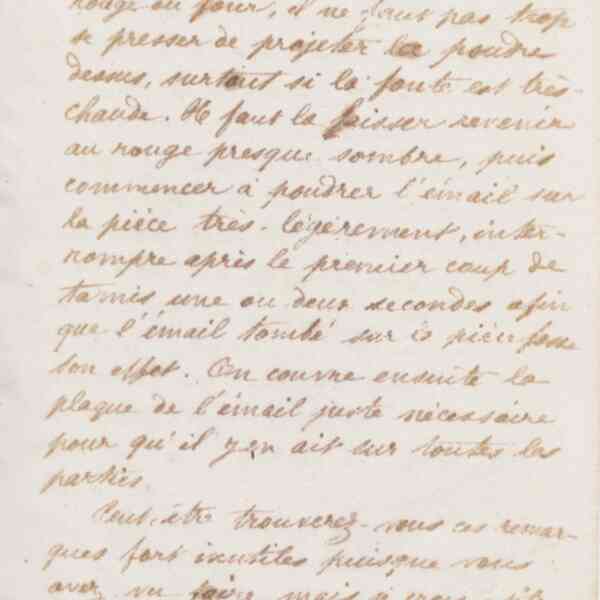 rouge au four, il ne faut pas trop
se presser de projeter la poudre
dessus, surtout si la fonte est très-
chaude. Il faut la laisser revenir
au rouge presque sombre, puis
commencer à poudrer l'émail sur
la pièce très-légèrement, inter-
rompre après le premier coup de
tamis une ou deux secondes afin
que l'émail tombé sur la pièce fasse
son effet. On couvre ensuite la
plaque de l'émail juste nécessaire
pour qu'il y en ait sur toutes les
parties.
Peut-être trouverez-vous ces remar-
ques fort inutiles puisque vous
avez vu faire, mais je crois